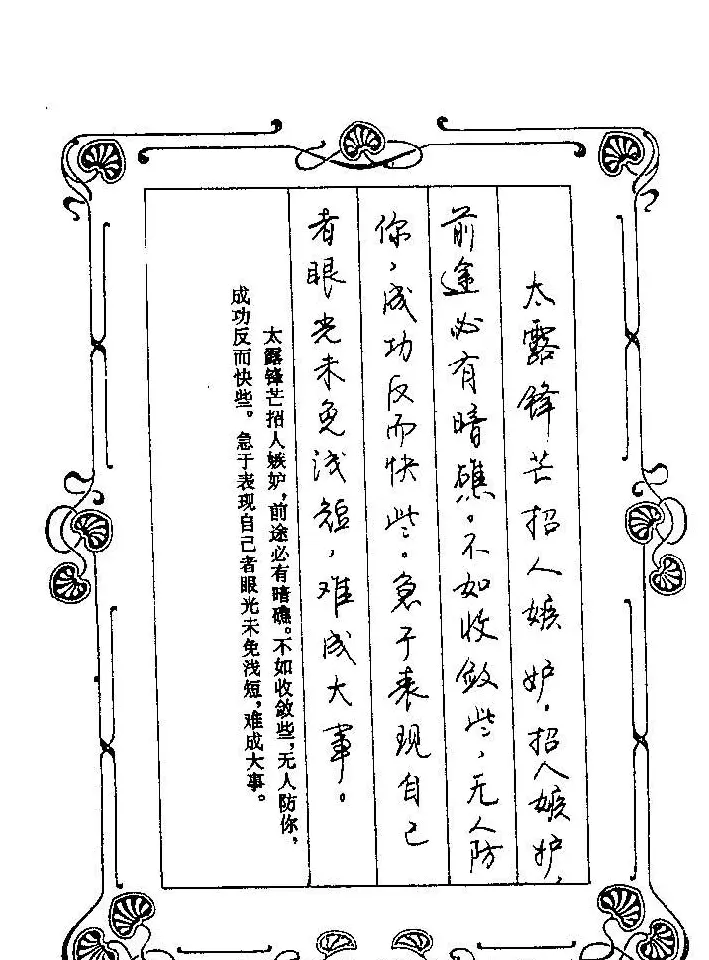 太露锋芒招人嫉妒，招人嫉妒，
前途必有暗礁。不如收敛些，无人防
你，成功反而快些。急于表现自己
者眼光未免浅短，难成大事。
太露锋芒招人嫉妒，前途必有暗礁。不如收敛些，无人防你，
成功反而快些。急于表现自己者眼光未免浅短，难成大事。